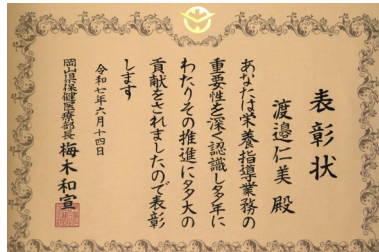 表彰状
渡邉仁美 殿
あなたは栄養指導業務の
重要性を深く認識し多年に
わたりその推進に多大の
貢献をされましたので表彰
します
令和七年六月十四日
岡山県保健医療部長 梅木和宣